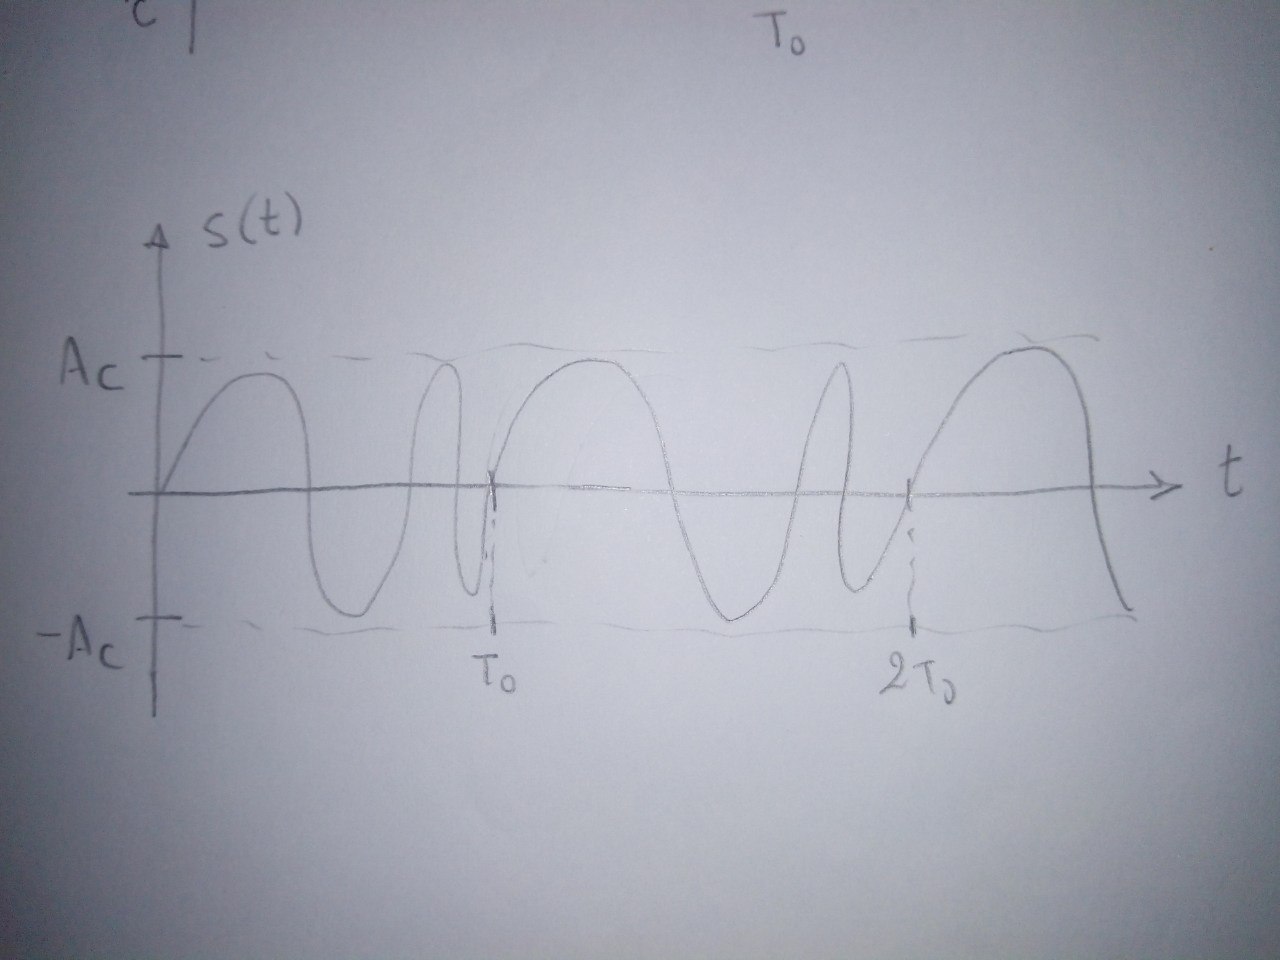 c
T₀
s(t)
Ac
t
-Ac
T₀
2T₀